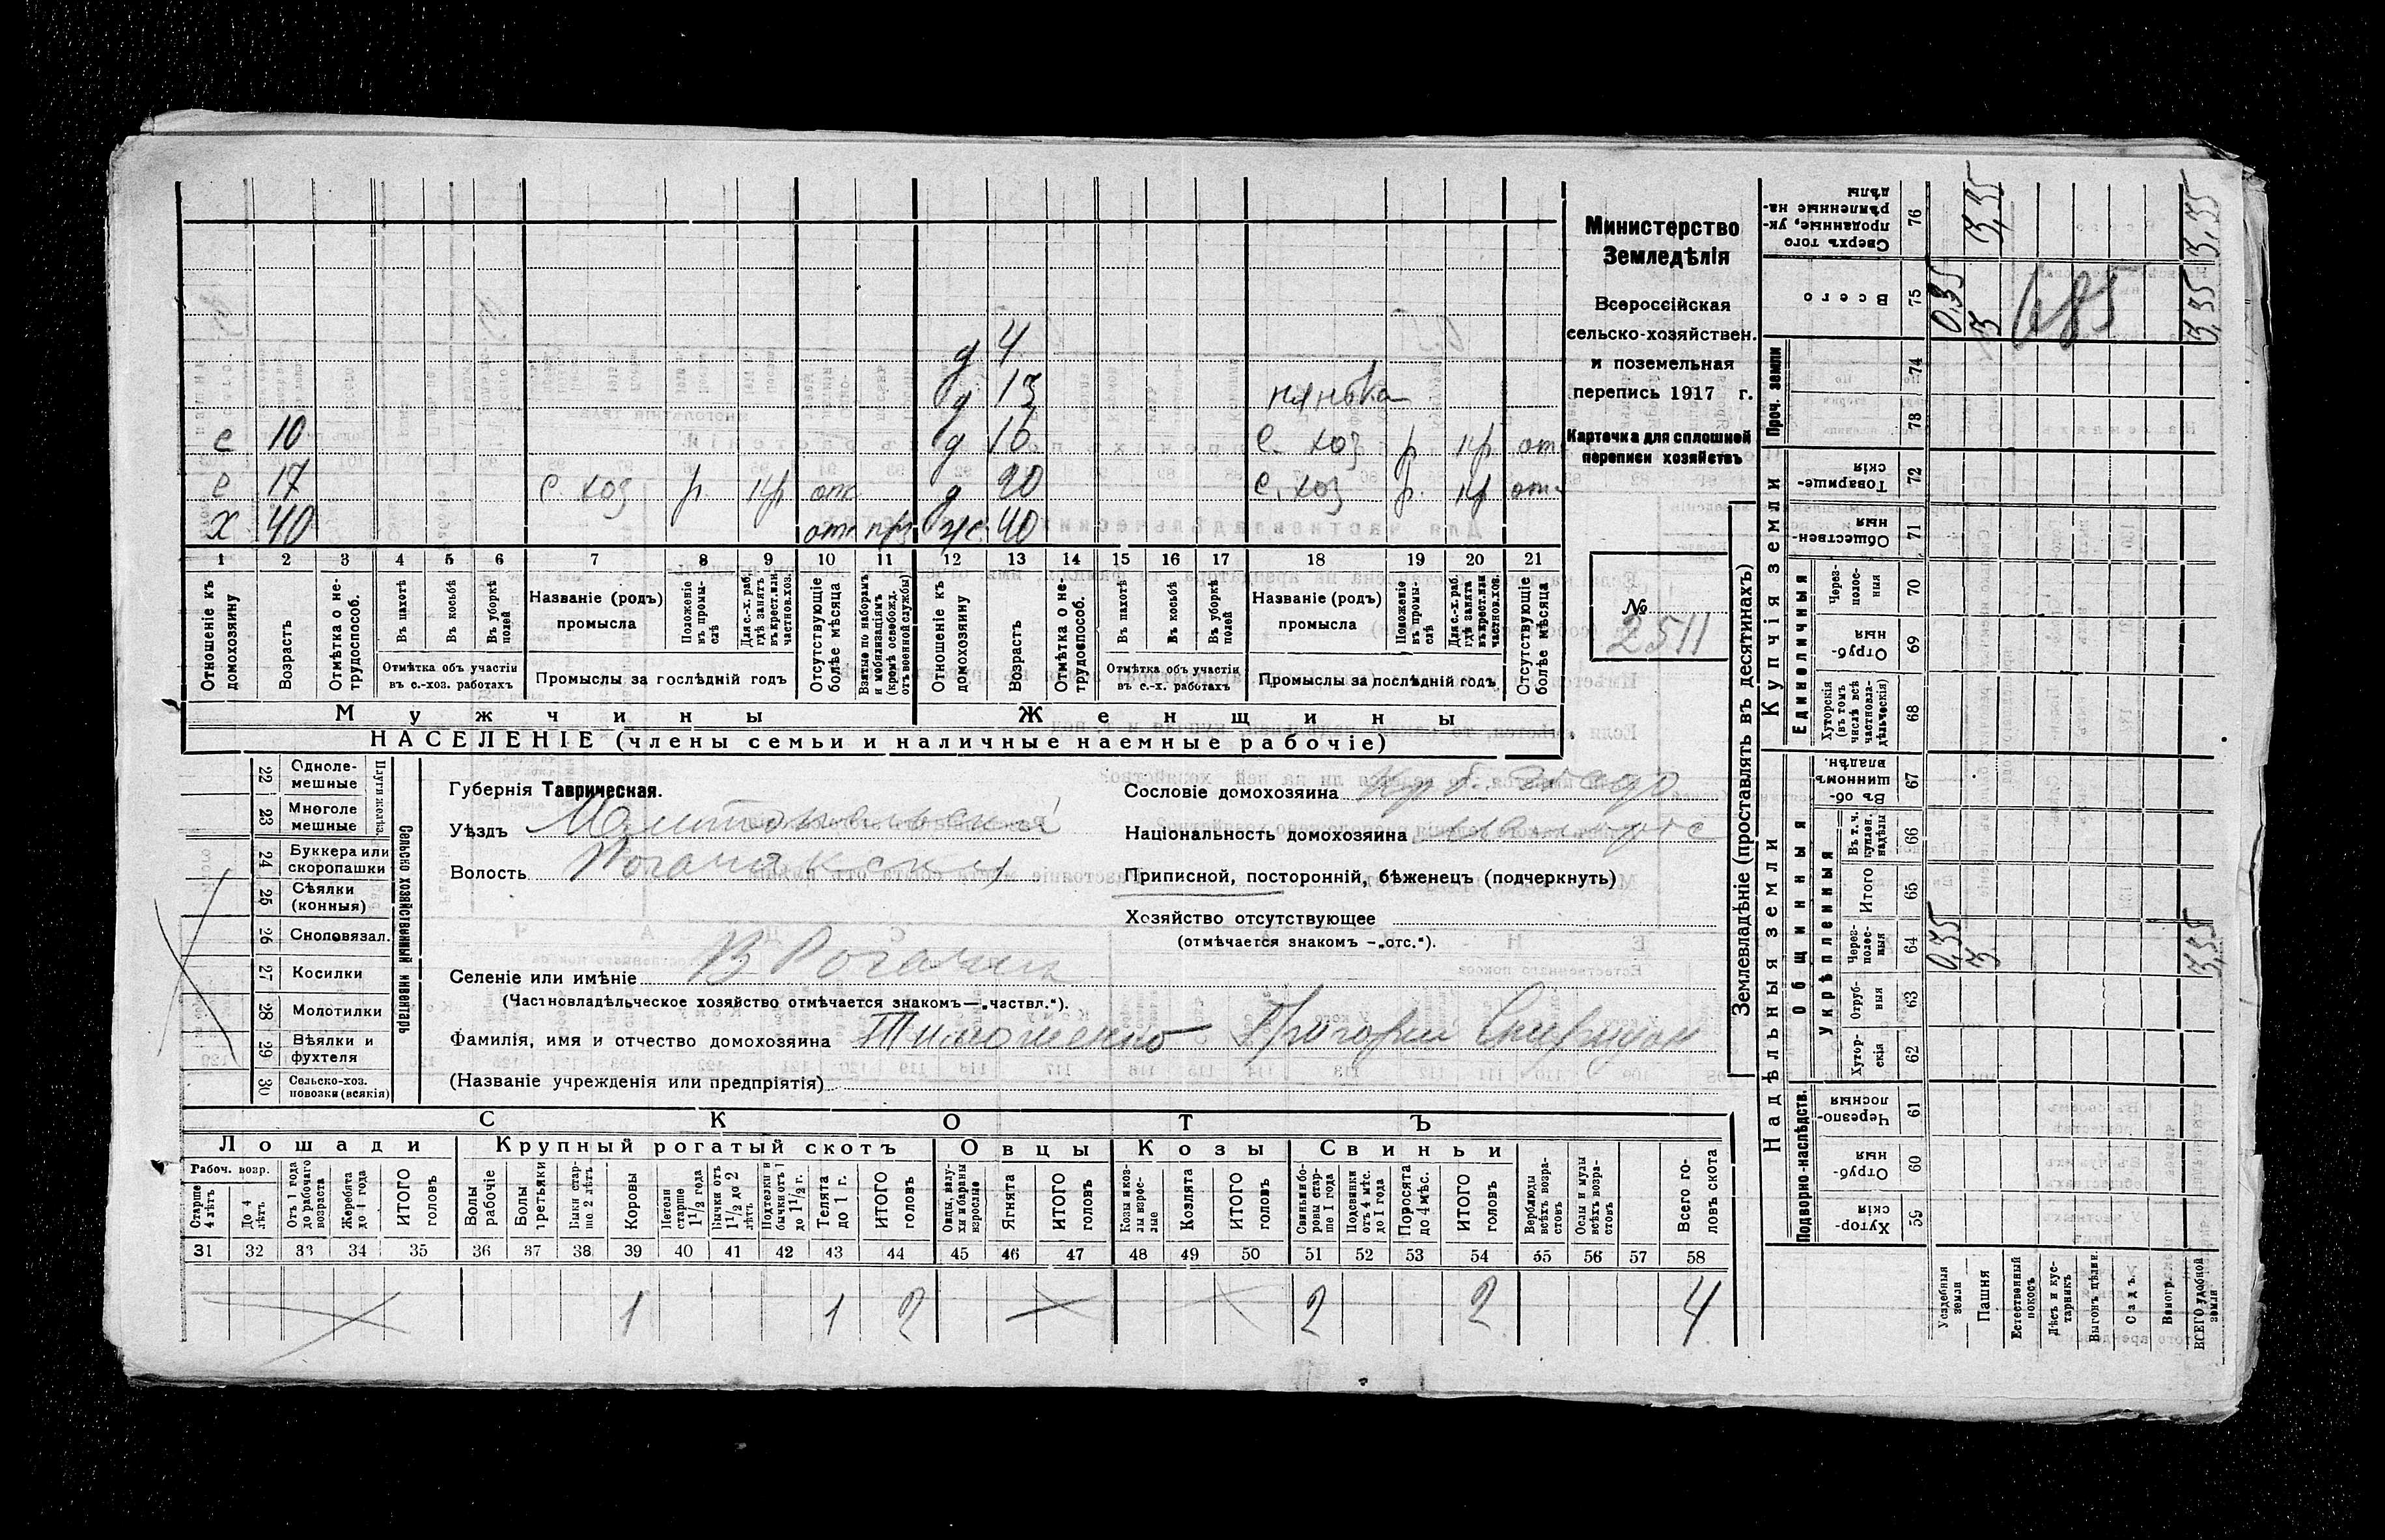 Министерство
Земледѣлія
Всероссійская
сельско-хозяйствен.
и поземельная
перепись 1917 г.
Карточка для сплошной
переписи хозяйствъ
№
2511
д 4
д 13 нянька
с 10 д 16 с. хоз р кр отс
с 17 с хоз р. кр отс д 20 с. хоз р. кр отс
х 40 отс. ж. 40
1 2 3 4 5 6 7 8 9 10 11 12 13 14 15 16 17 18 19 20 21
Отношеніе къ домохозяину
Возрастъ
Отмѣтка о не-трудоспособ.
Въ пахотѣ
Въ косьбѣ
Въ уборкѣ полей
Отмѣтка объ участіи въ с.-хоз. работахъ
Названіе (родъ) промысла
Положеніе въ промы-слѣ
Для с.-х. раб. гдѣ занятъ въ крест. или частнов. хоз.
Промыслы за послѣдній годъ
Отсутствующіе болѣе мѣсяца
Взятые по наборамъ и мобилизаціямъ (кромѣ освобожд. отъ военной службы)
Отношеніе къ домохозяину
Возрастъ
Отмѣтка о не-трудоспособ.
Въ пахотѣ
Въ косьбѣ
Въ уборкѣ полей
Отмѣтка объ участіи въ с.-х. работахъ
Названіе (родъ) промысла
Положеніе въ промы-слѣ
Для с.-х. раб. гдѣ занята въ крест. или частнов. хоз.
Промыслы за послѣдній годъ
Отсутствующіе болѣе мѣсяца
Мужчины Женщины
НАСЕЛЕНІЕ (члены семьи и наличные наемные рабочіе)
Сельско хозяйственный инвентарь
Плуги желѣз.
22 Одноле-мешные
23 Многоле мешные
24 Буккера или скоропашки
25 Сѣялки (конныя)
26 Сноповязал.
27 Косилки
28 Молотилки
29 Вѣялки и фухтеля
30 Сельско-хоз. повозки (всякія)
Губернія Таврическая.
Уѣздъ Мелитопольскій
Волость Рогачикская
Селеніе или имѣніе В Рогачик
(Частновладѣльческое хозяйство отмѣчается знакомъ—„частвл.“).
Фамилія, имя и отчество домохозяина Тимошенко Григорій Спиридон
(Названіе учрежденія или предпріятія)
Сословіе домохозяина
Національность домохозяина
Приписной, посторонній, бѣженецъ (подчеркнуть)
Хозяйство отсутствующее
(отмѣчается знакомъ —„отс.“).
СКОТЪ
Лошади Крупный рогатый скотъ Овцы Козы Свиньи
Рабоч. возр.
Старше 4 лѣтъ
До 4 лѣтъ
Отъ 1 года до рабочаго возраста
Жеребята до 1 года
ИТОГО головъ
Волы рабочіе
Волы третьяки
Быки стар-ше 2 лѣтъ
Коровы
Нетели старше 1½ года
Бычки отъ 1½ до 2 лѣтъ
Подтелки и бычки отъ 1 до 1½ г.
Телята до 1 г.
ИТОГО головъ
Овцы, валу-хи и бараны взрослые
Ягнята
ИТОГО головъ
Козы и коз-лы взрос-лые
Козлята
ИТОГО головъ
Свиньи и бо-ровы стар-ше 1 года
Подсвинки отъ 4 мѣс. до 1 года
Поросята до 4 мѣс.
ИТОГО головъ
Верблюды всѣхъ возра-стовъ
Ослы и мулы всѣхъ возра-стовъ
Всего го-ловъ скота
31 32 33 34 35 36 37 38 39 40 41 42 43 44 45 46 47 48 49 50 51 52 53 54 55 56 57 58
1 1 2 2 2 4
Землевладѣніе (проставлять въ десятинахъ)
Сверхъ того проданные, ук-рѣпленные на-дѣлы 76 3,35 3,35
Всего 75 0,35 3 685 3,35
Проч. земли
74
73
Купчія земли
Товарище-скія 72
Обществен-ныя 71
Единоличныя
Через-полос-ныя 70
Отруб-ныя 69
Хуторскія (въ томъ числѣ всѣ частновла-дѣльческія) 68
Надѣльныя земли
Общинныя
Въ об-щинномъ владѣн. 67
Укрѣпленныя
Въ т. ч. куплен. надѣлы 66
Итого 65
Через-полос-ныя 64 0,35 3 3,35
Отруб-ныя 63
Хутор-скія 62
Подворно-наслѣдств.
Черезпо-лосныя 61
Отруб-ныя 60
Хутор-скія 59
Усадебныя земли
Пашня
Естественный покосъ
Лѣсъ и кус-тарникъ
Выгонъ цѣлин.
Садъ.
Виногр.
ВСЕГО удобной земли